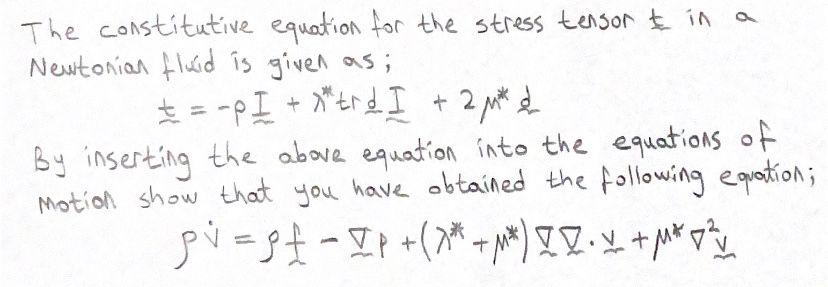 The constitutive equation for the stress tensor t in a
Newtonian fluid is given as;
t = -pI + λ* tr d I + 2 μ* d
By inserting the above equation into the equations of
motion show that you have obtained the following equation;
ρv̇ = ρf - ∇p + (λ* + μ*) ∇∇·v + μ* ∇²v